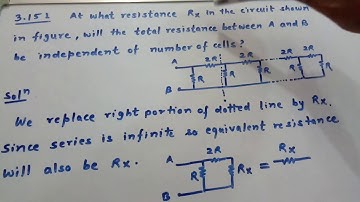 3.151 At what resistance Rx in the circuit shown
in figure, will the total resistance between A and B
be independent of number of cells?
2R 2R 2R 2R
A
R R R R
B
Soln
We replace right portion of dotted line by Rx.
Since series is infinite so equivalent resistance
will also be Rx.
2R Rx
A
R Rx =
B